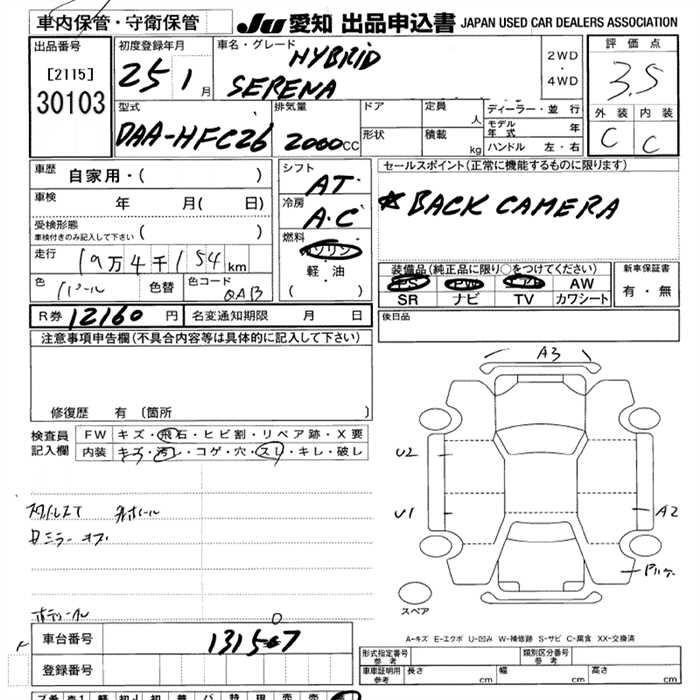 車内保管・守衛保管 JU 愛知 出品申込書 JAPAN USED CAR DEALERS ASSOCIATION
出品番号 初度登録年月 車名・グレード HYBRID 2WD 評価点
[2115] 25 1 月 SERENA ・ 4WD 3.5
30103 型式 排気量 ドア 定員 人 ディーラー・並行 外装 内装
DAA-HFC26 2000CC 形状 積載 kg モデル年式 年 C C
ハンドル 左・右
車歴 自家用・( ) シフト AT セールスポイント(正常に機能するものに限ります)
車検 年 月( 日) 冷房 A.C ☆BACK CAMERA
受検形態 車検付きのみ記入して下さい ( ) 燃料 ガソリン
走行 19万4千154km 軽・油 装備品(純正品に限り○をつけてください) 新車保証書
色 パール 色替 色コード QAB ( ) PS PW エアB AW 有・無
SR ナビ TV カワシート
R券 12160 円 名変通知期限 月 日 後日品
注意事項申告欄(不具合内容等は具体的に記入して下さい)
A3
修復歴 有 〔箇所 〕
検査員 FW キズ・飛石・ヒビ割・リペア跡・X要
記入欄 内装 キズ・汚れ・コゲ・穴・スレ・キレ・破し
U2
U1 A2
スペア
車台番号 131507
登録番号
A-キズ E-エクボ U-凹み W-補修跡 S-サビ C-腐食 XX-交換済
形式指定番号 参考 類別区分番号 参考
車庫証明用 参考 長さ cm 幅 cm 高さ cm